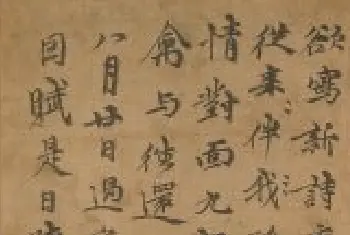 欲寫新詩
從来伴我
情對面尤
禽与往還
八月廿日過
因賦是日